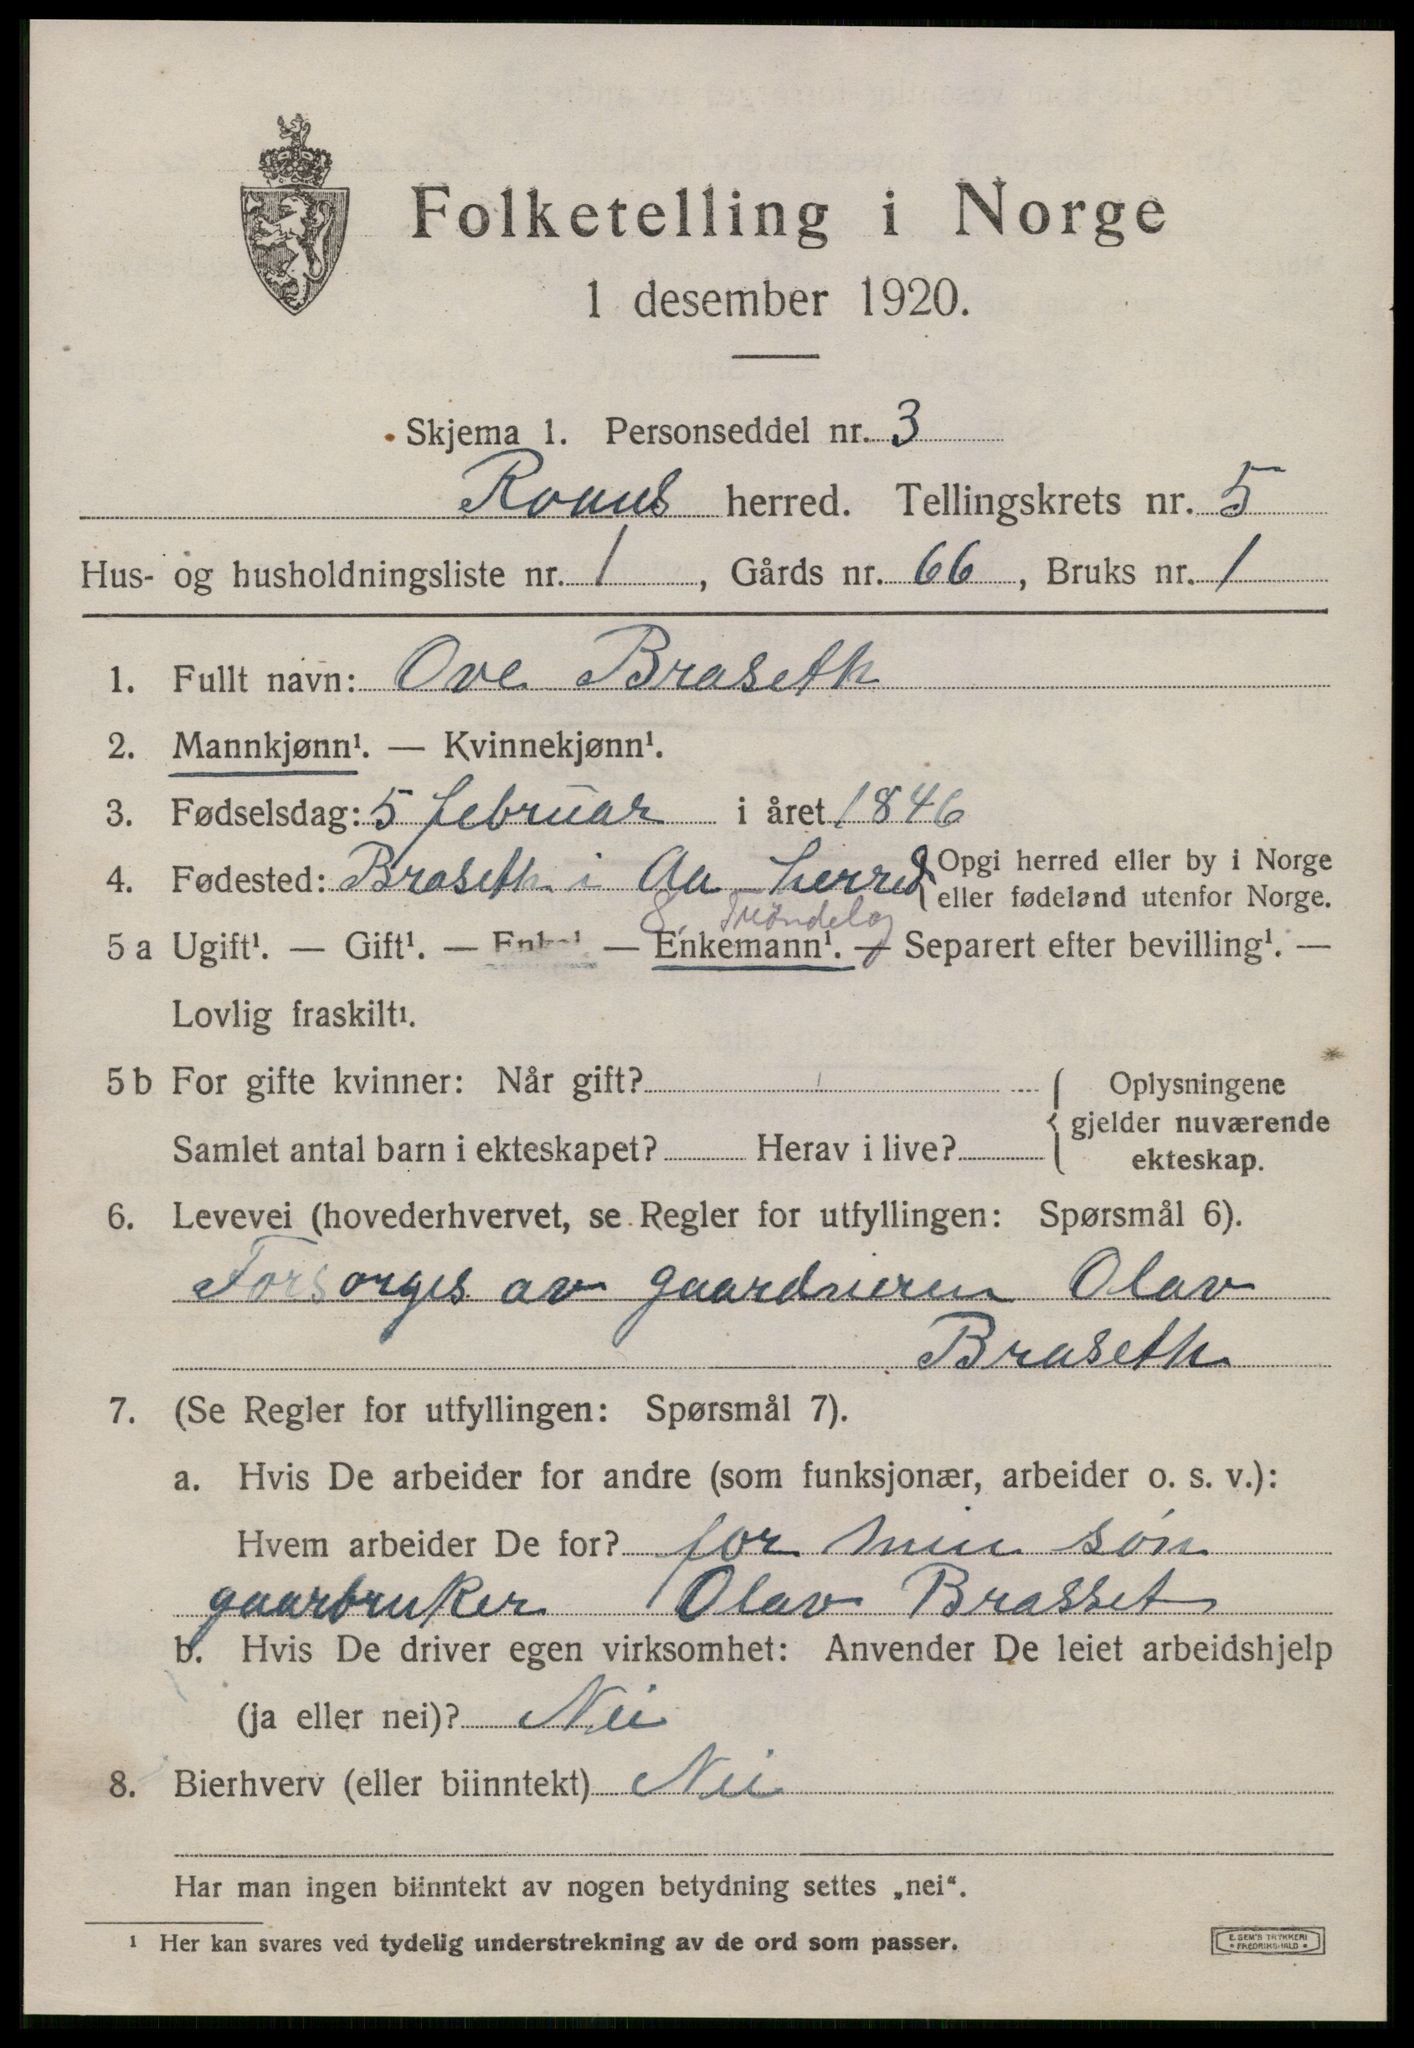 Folketelling i Norge
1 desember 1920.
Skjema 1. Personseddel nr. 3
herred. Tellingskrets nr. 5
Hus- og husholdningsliste nr. 1, Gårds nr. 66, Bruks nr. 1
1. Fullt navn: Ove Braseth
2. Mannkjønn¹. — Kvinnekjønn¹.
3. Fødselsdag: 5 februar i året 1846
4. Fødested: Braseth i Aa herred { Opgi herred eller by i Norge
eller fødeland utenfor Norge.
S. Trøndelag
5 a Ugift¹. — Gift¹. — Enke¹ — Enkemann¹. — Separert efter bevilling¹. —
Lovlig fraskilt¹.
5 b For gifte kvinner: Når gift? { Oplysningene
gjelder nuværende
Samlet antal barn i ekteskapet? Herav i live? ekteskap.
6. Levevei (hovederhvervet, se Regler for utfyllingen: Spørsmål 6).
Forsorges av gaardeieren Olav
Braseth
7. (Se Regler for utfyllingen: Spørsmål 7).
a. Hvis De arbeider for andre (som funksjonær, arbeider o. s. v.):
Hvem arbeider De for? for min søn
gaarbruker Olav Brasset
b. Hvis De driver egen virksomhet: Anvender De leiet arbeidshjelp
(ja eller nei)? Nei
8. Bierhverv (eller biinntekt) Nei
Har man ingen biinntekt av nogen betydning settes „nei“.
¹ Her kan svares ved tydelig understrekning av de ord som passer.
E. SEM'S TRYKKERI
FREDRIKSHALD